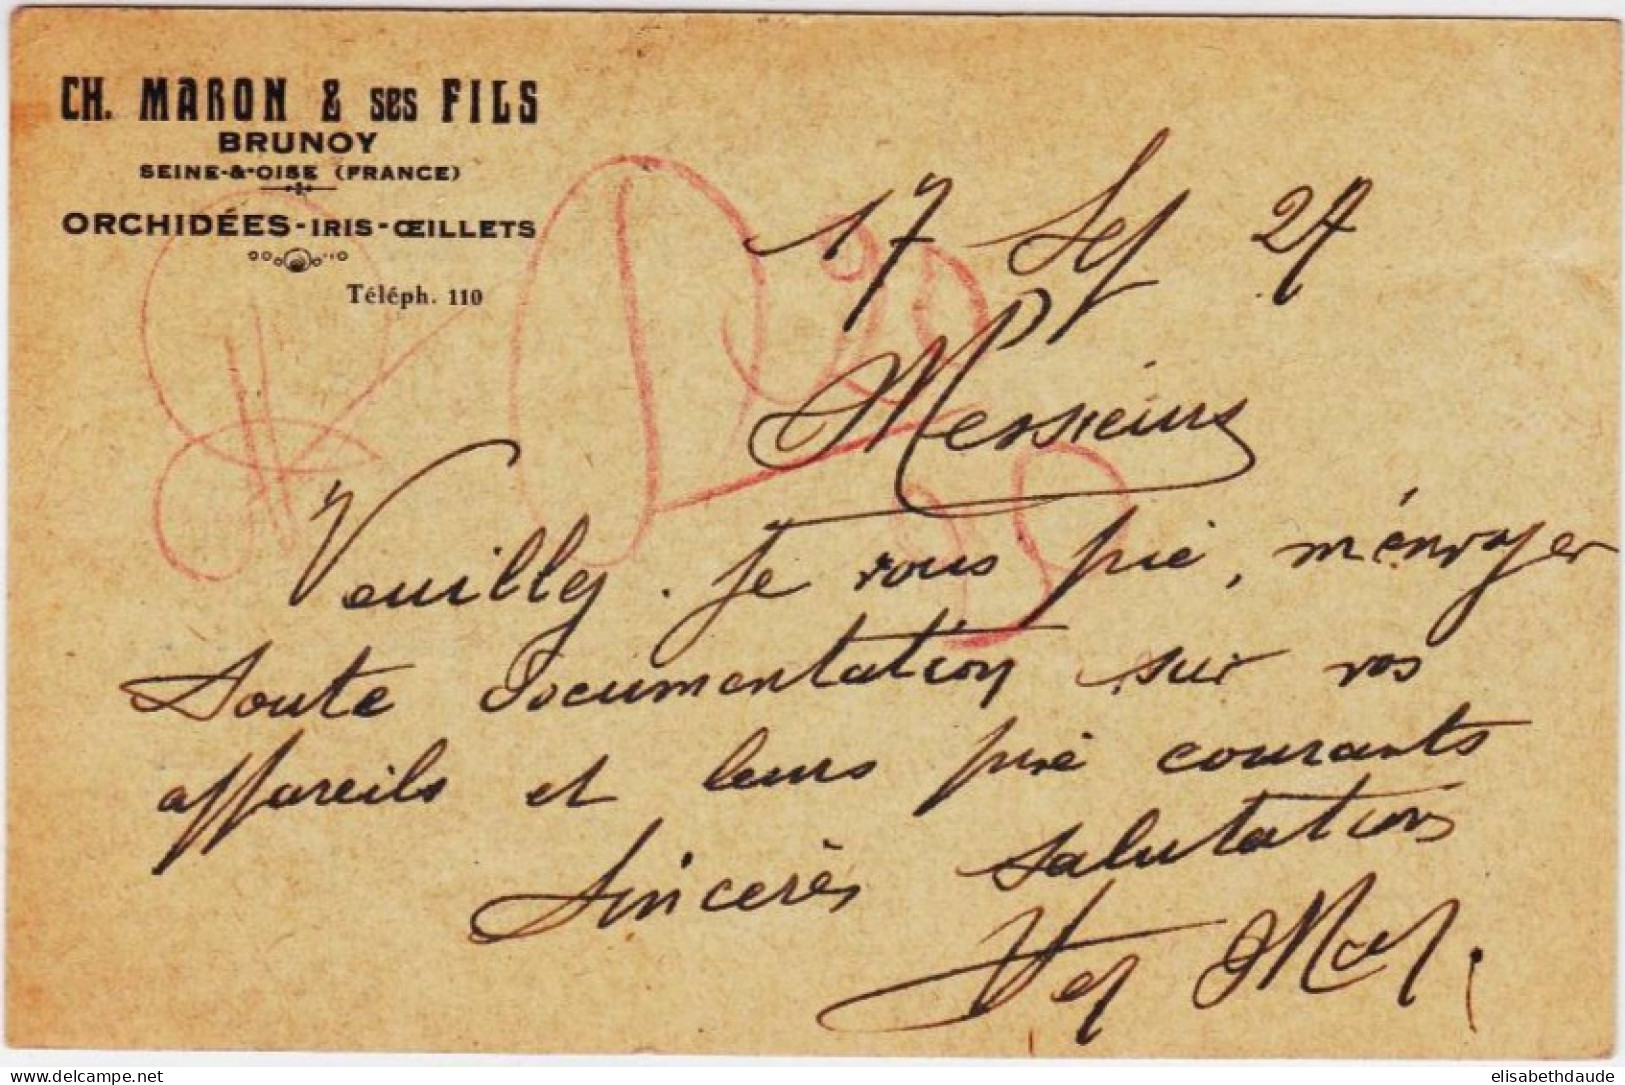 CH. MARON & SES FILS
BRUNOY
SEINE-&-OISE (FRANCE)
ORCHIDÉES - IRIS - ŒILLETS
Téléph. 110
17 Sep 27
Messieurs
Veuillez. Je vous prie, m'envoyer
toute documentation sur vos
appareils et leurs prix courants
Sincères salutations
www.delcampe.net
elisabethdaude